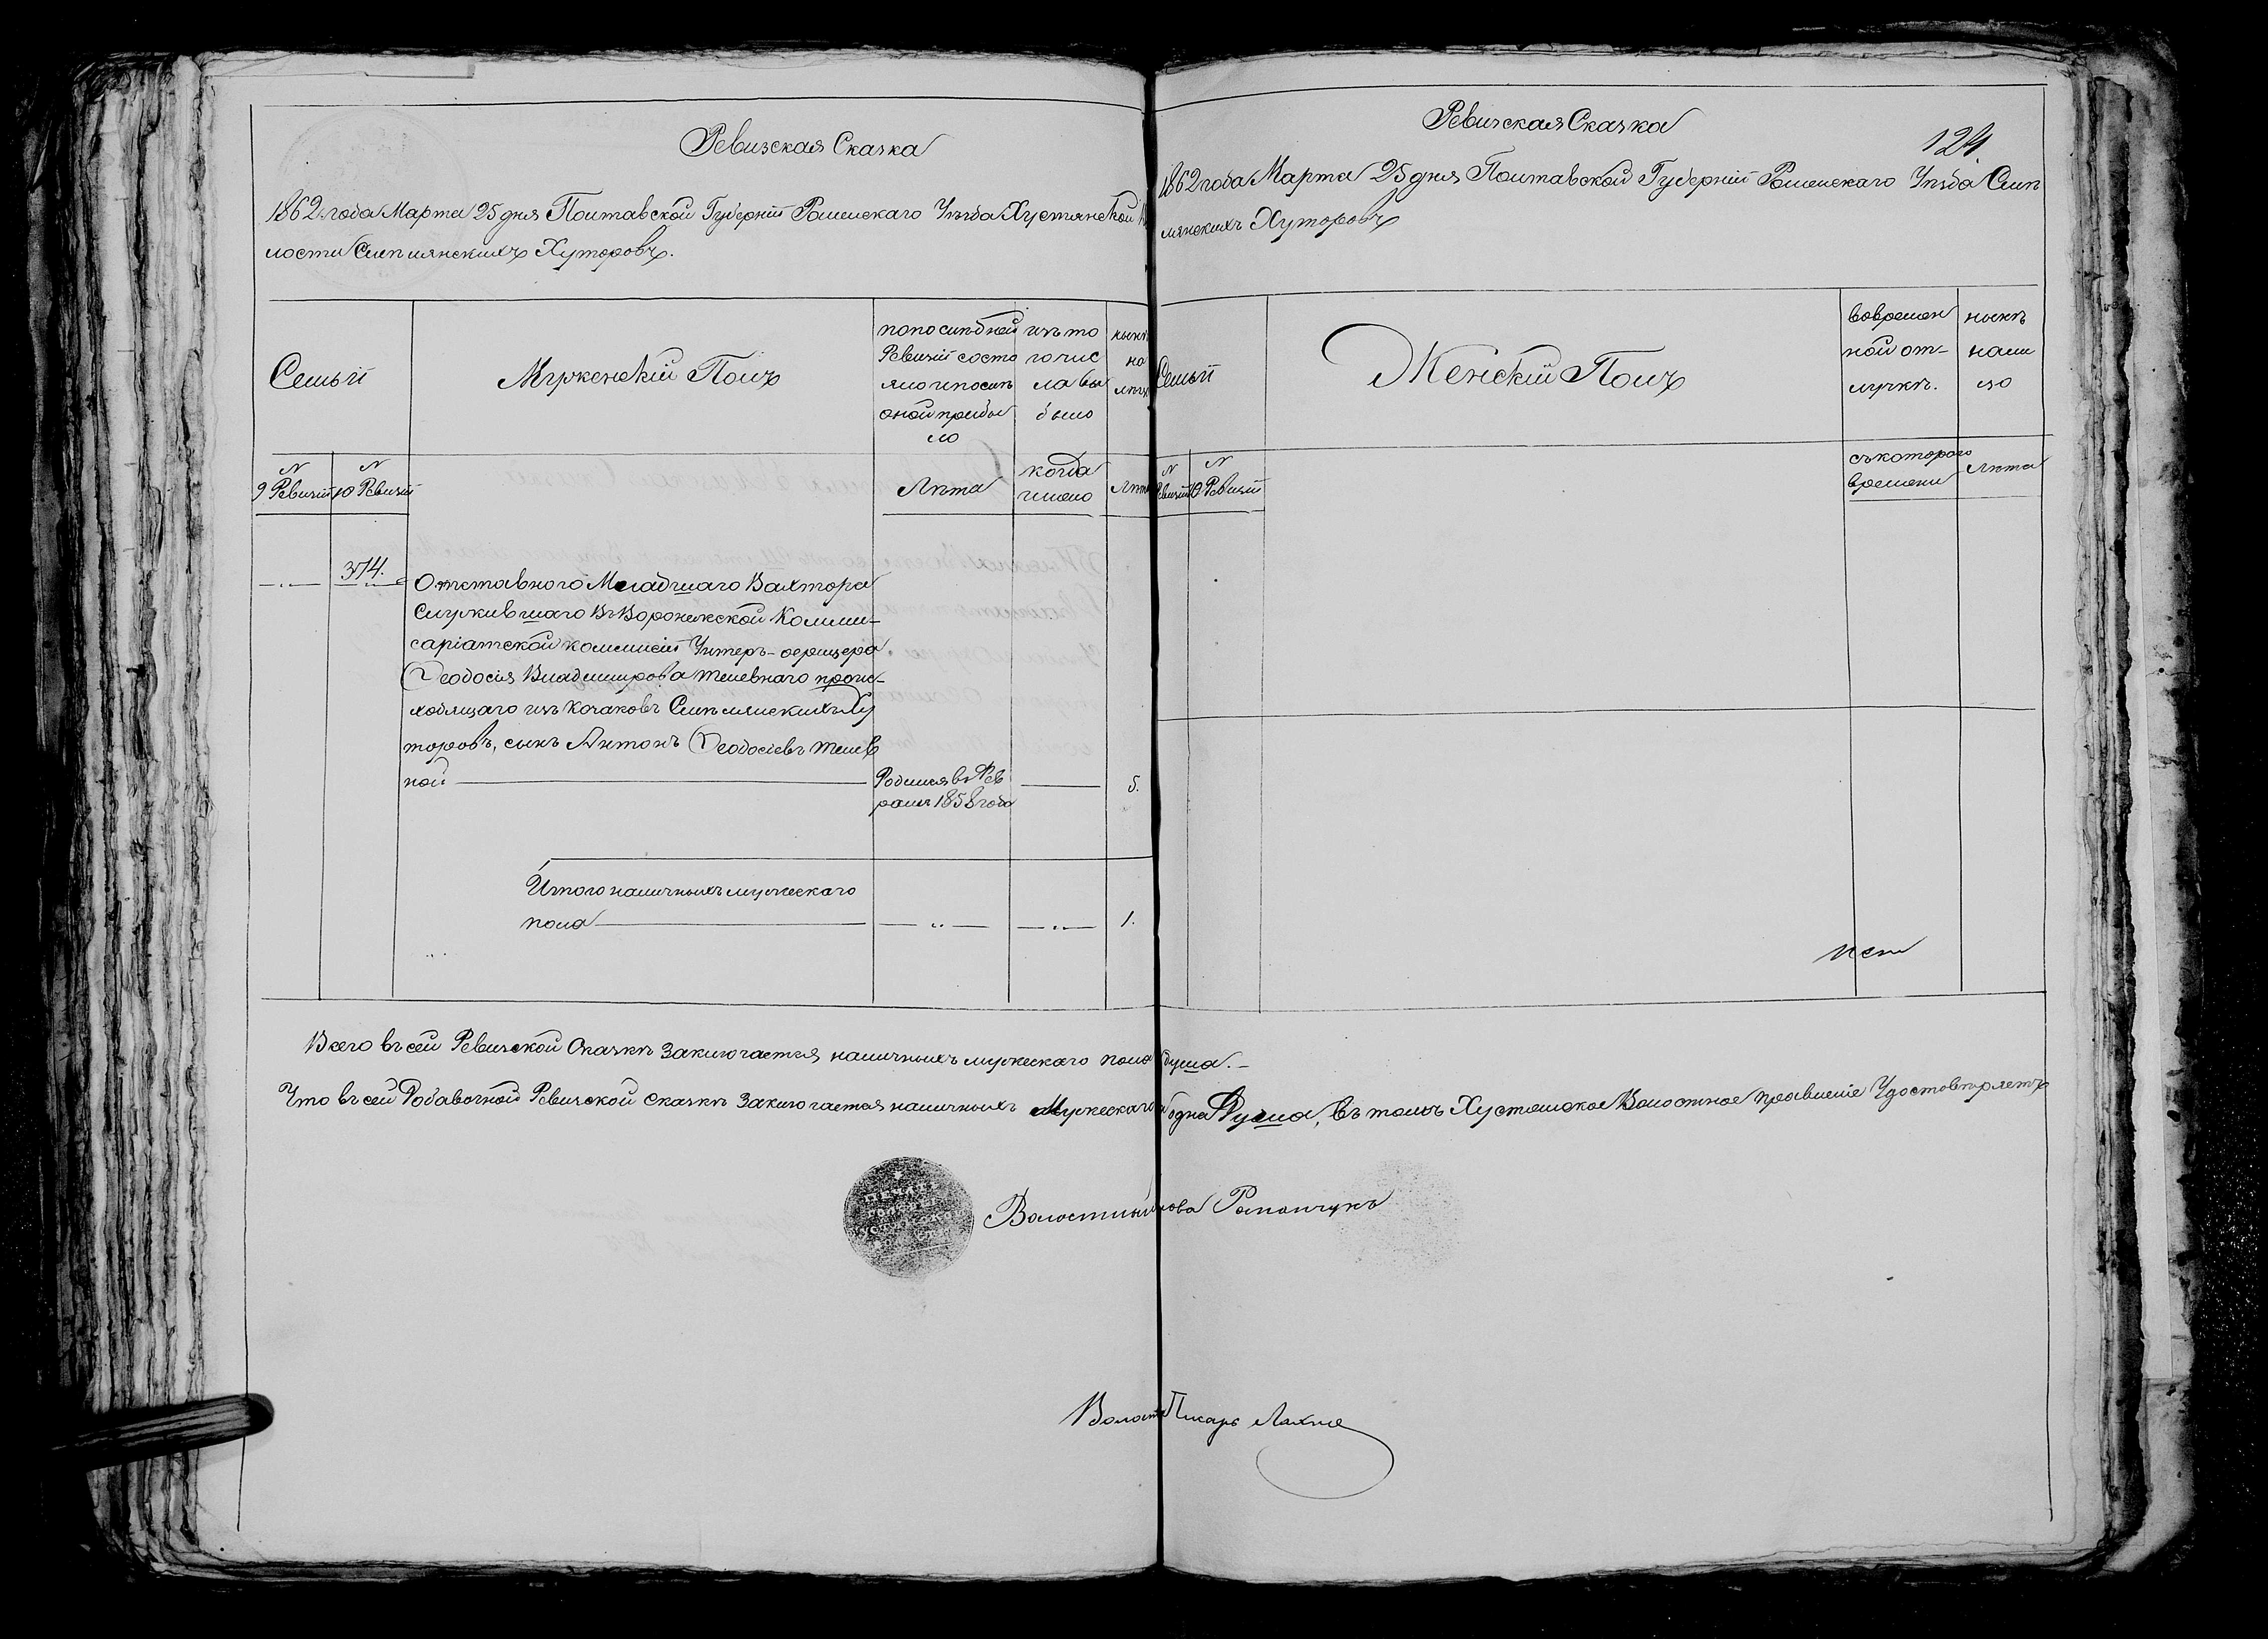 Ревизская Сказка
1862 года Марта 25 дня Полтавской Губерніи Роменскаго Уѣзда Хустянской
лости Слѣпцянскихъ Хуторовъ.
Семьи
Мужескій Полъ
по послѣдней
Ревизіи состо
яло и послѣ
оной прибы
ло
изъ то
го чис
ла вы
было
нынѣ
на
лице
N
9 Ревизіи
N
10 Ревизіи
Лѣта
когда
имено
Лѣта
374.
Отставного Младшаго Вахтера
Служившаго въ Воронежской Комми-
саріатской коммисіи Унтеръ-офицера
Ѳеодосія Владимирова Телевнаго проис-
ходящаго изъ козаковъ Хху
торовъ, сынъ Антонъ Ѳеодосіевъ Телев
ной
Родился въ Фев
ралѣ 1858 года
5.
Итого наличныхъ мужескаго
пола
1.
Ревизская Сказка
124.
1862 года Марта 25 дня Полтавской Губерніи Роменскаго Уѣзда
Хуторовъ
Семьи
Женскій Полъ
во времен
ной от-
лучкѣ.
нынѣ
нали
цо
N
Ревизіи
N
10 Ревизіи
съ котораго
времени
Лѣта
нет
Всего въ сей Ревизской Сказкѣ заключается наличныхъ мужескаго пола душа.-
Что въ сей Добавочной Ревизской сказкѣ заключается наличныхъ Мужескаго одна Душа, въ томъ Волостное правленіе Удостовѣряетъ
Волостной Голова
Волост Писарь